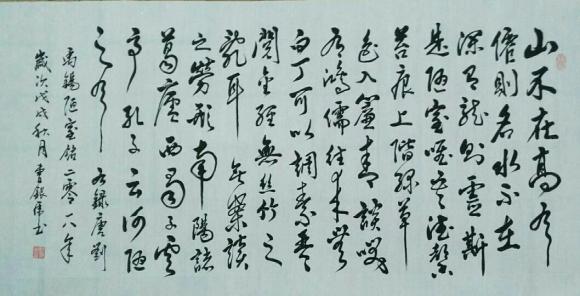 山不在高有
僊則名水不在
深有龍則靈斯
是陋室唯吾德馨
苔痕上階綠草
色入簾青談笑
有鴻儒往來無
白丁可以調素琴
閱金經無絲竹之
亂耳 無案牘
之勞形南陽諸
葛廬西蜀子雲
亭孔子云何陋
之有 右錄唐劉
禹錫陋室銘二零一八年
歲次戊戌秋月曹銀書